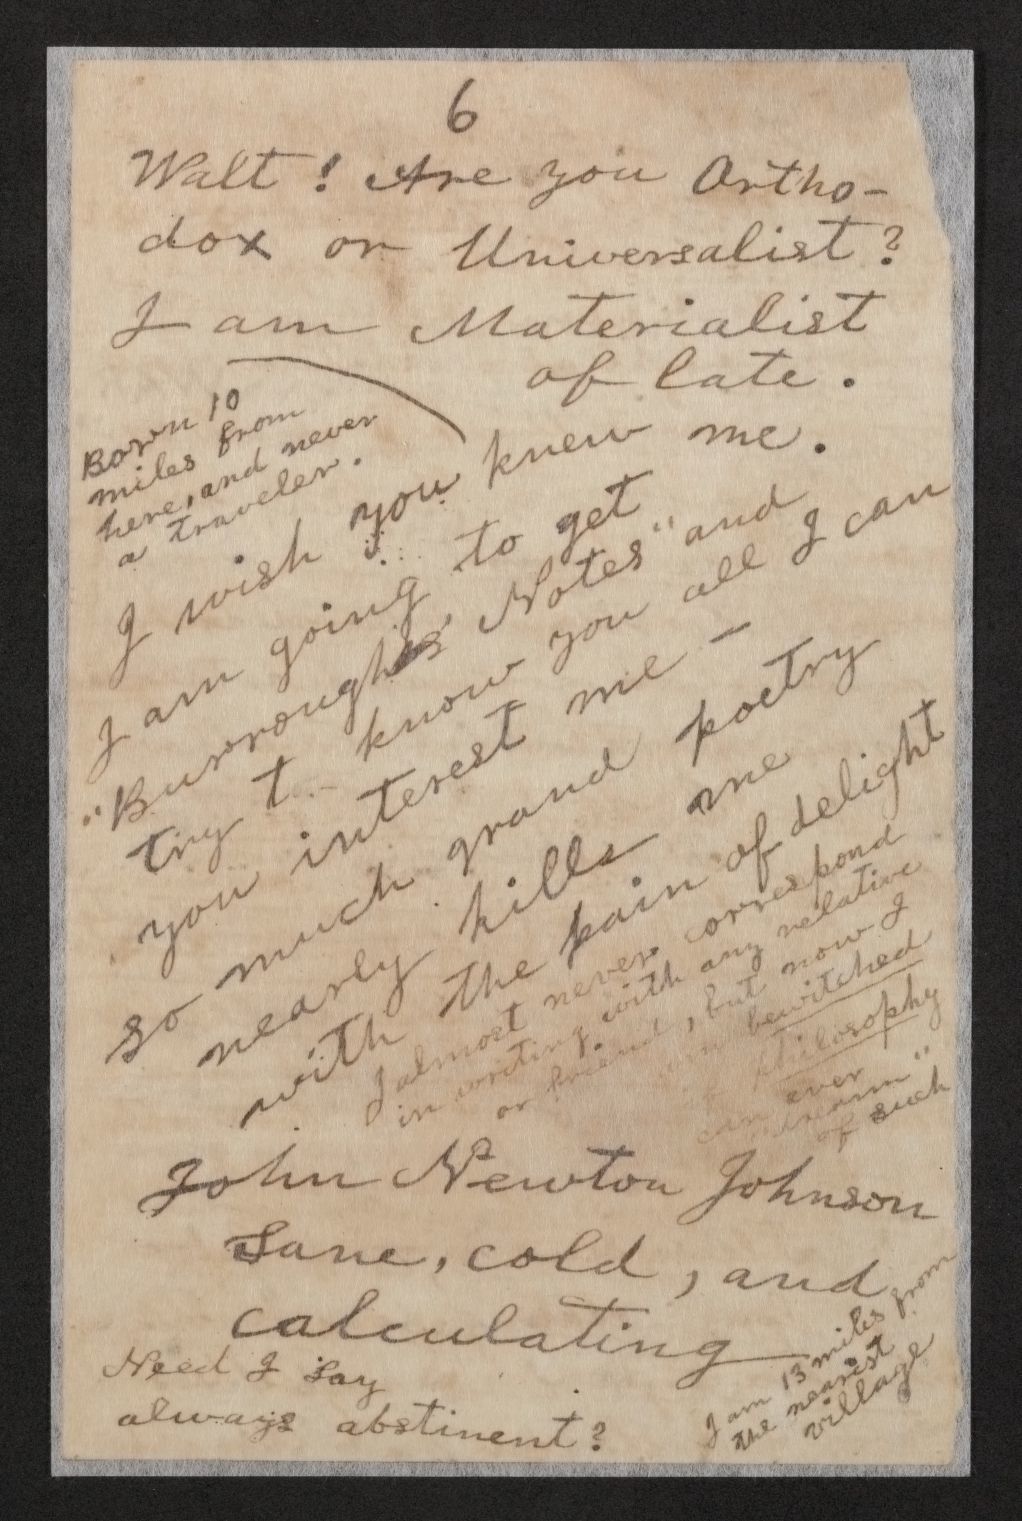 6
Walt! Are you Ortho-
dox or Universalist?
I am Materialist
of late.
Born 10
miles from
here, and never
a traveler.
I wish you knew me.
I am going to get
"Burroughs' Notes" and
try to know you all I can
you interest me —
so much grand poetry
nearly kills me
with the pain of delight
I almost never correspond
in writing with any relative
or friend, but now I
am bewitched
philosophy
can ever
dream"
of such
John Newton Johnson
Sane, cold, and
calculating
Need I say
always abstinent?
I am 13 miles from
the nearest
village